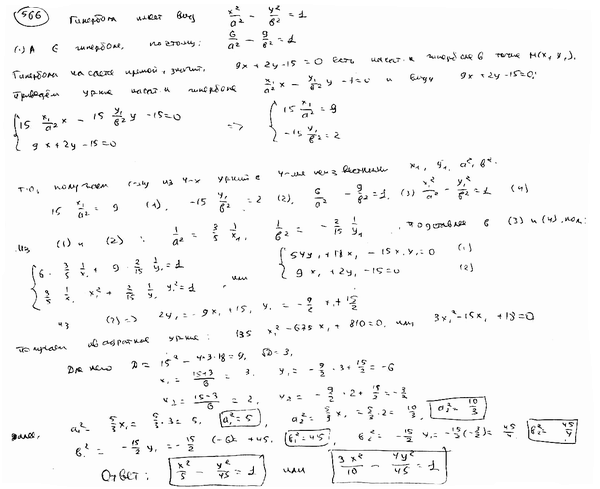 566 Гипербола имеет вид x²/a² - y²/b² = 1
(·) A ∈ гиперболе, поэтому: 6/a² - 9/b² = 1
Гипербола касается прямой, значит, 9x + 2y - 15 = 0 есть касат. к гиперболе в точке M(x₁, y₁).
Приведём ур-ние касат. к гиперболе x₁/a² x - y₁/b² y - 1 = 0 к виду 9x + 2y - 15 = 0:
{ 15 x₁/a² x - 15 y₁/b² y - 15 = 0 => { 15 x₁/a² = 9
{ 9x + 2y - 15 = 0 { -15 y₁/b² = 2
Т.о. получаем с-му из 4-х ур-ний с 4-мя неизвестными x₁, y₁, a², b².
15 x₁/a² = 9 (1), -15 y₁/b² = 2 (2), 6/a² - 9/b² = 1, (3) x₁²/a² - y₁²/b² = 1 (4)
Из (1) и (2): 1/a² = 3/5 1/x₁, 1/b² = - 2/15 1/y₁. Подставляе в (3) и (4), пол.:
{ 6 · 3/5 1/x₁ + 9 · 2/15 1/y₁ = 1 или { 54y₁ + 18x₁ - 15x₁y₁ = 0 (1)
{ 3/5 1/x₁ x₁² + 2/15 1/y₁ y₁² = 1 { 9x₁ + 2y₁ - 15 = 0 (2)
из (2) => 2y₁ = -9x₁ + 15, y₁ = - 9/2 x₁ + 15/2
Получаем квадратное ур-ние: 135 x₁² - 675 x₁ + 810 = 0, или 3x₁² - 15x₁ + 18 = 0
Для него D = 15² - 4·3·18 = 9, √D = 3,
x₁ = (15+3)/6 = 3, y₁ = - 9/2 · 3 + 15/2 = -6
x₂ = (15-3)/6 = 2, y₂ = - 9/2 · 2 + 15/2 = - 3/2
a₁² = 5/3 x₁ = 5/3 · 3 = 5, a₁² = 5, a₂² = 5/3 x₂ = 5/3 · 2 = 10/3, a₂² = 10/3
b₁² = - 15/2 y₁ = - 15/2 (-6) = 45, b₁² = 45, b₂² = - 15/2 y₂ = - 15/2 (- 3/2) = 45/4 b₂² = 45/4
Ответ: x²/5 - y²/45 = 1 или 3x²/10 - 4y²/45 = 1